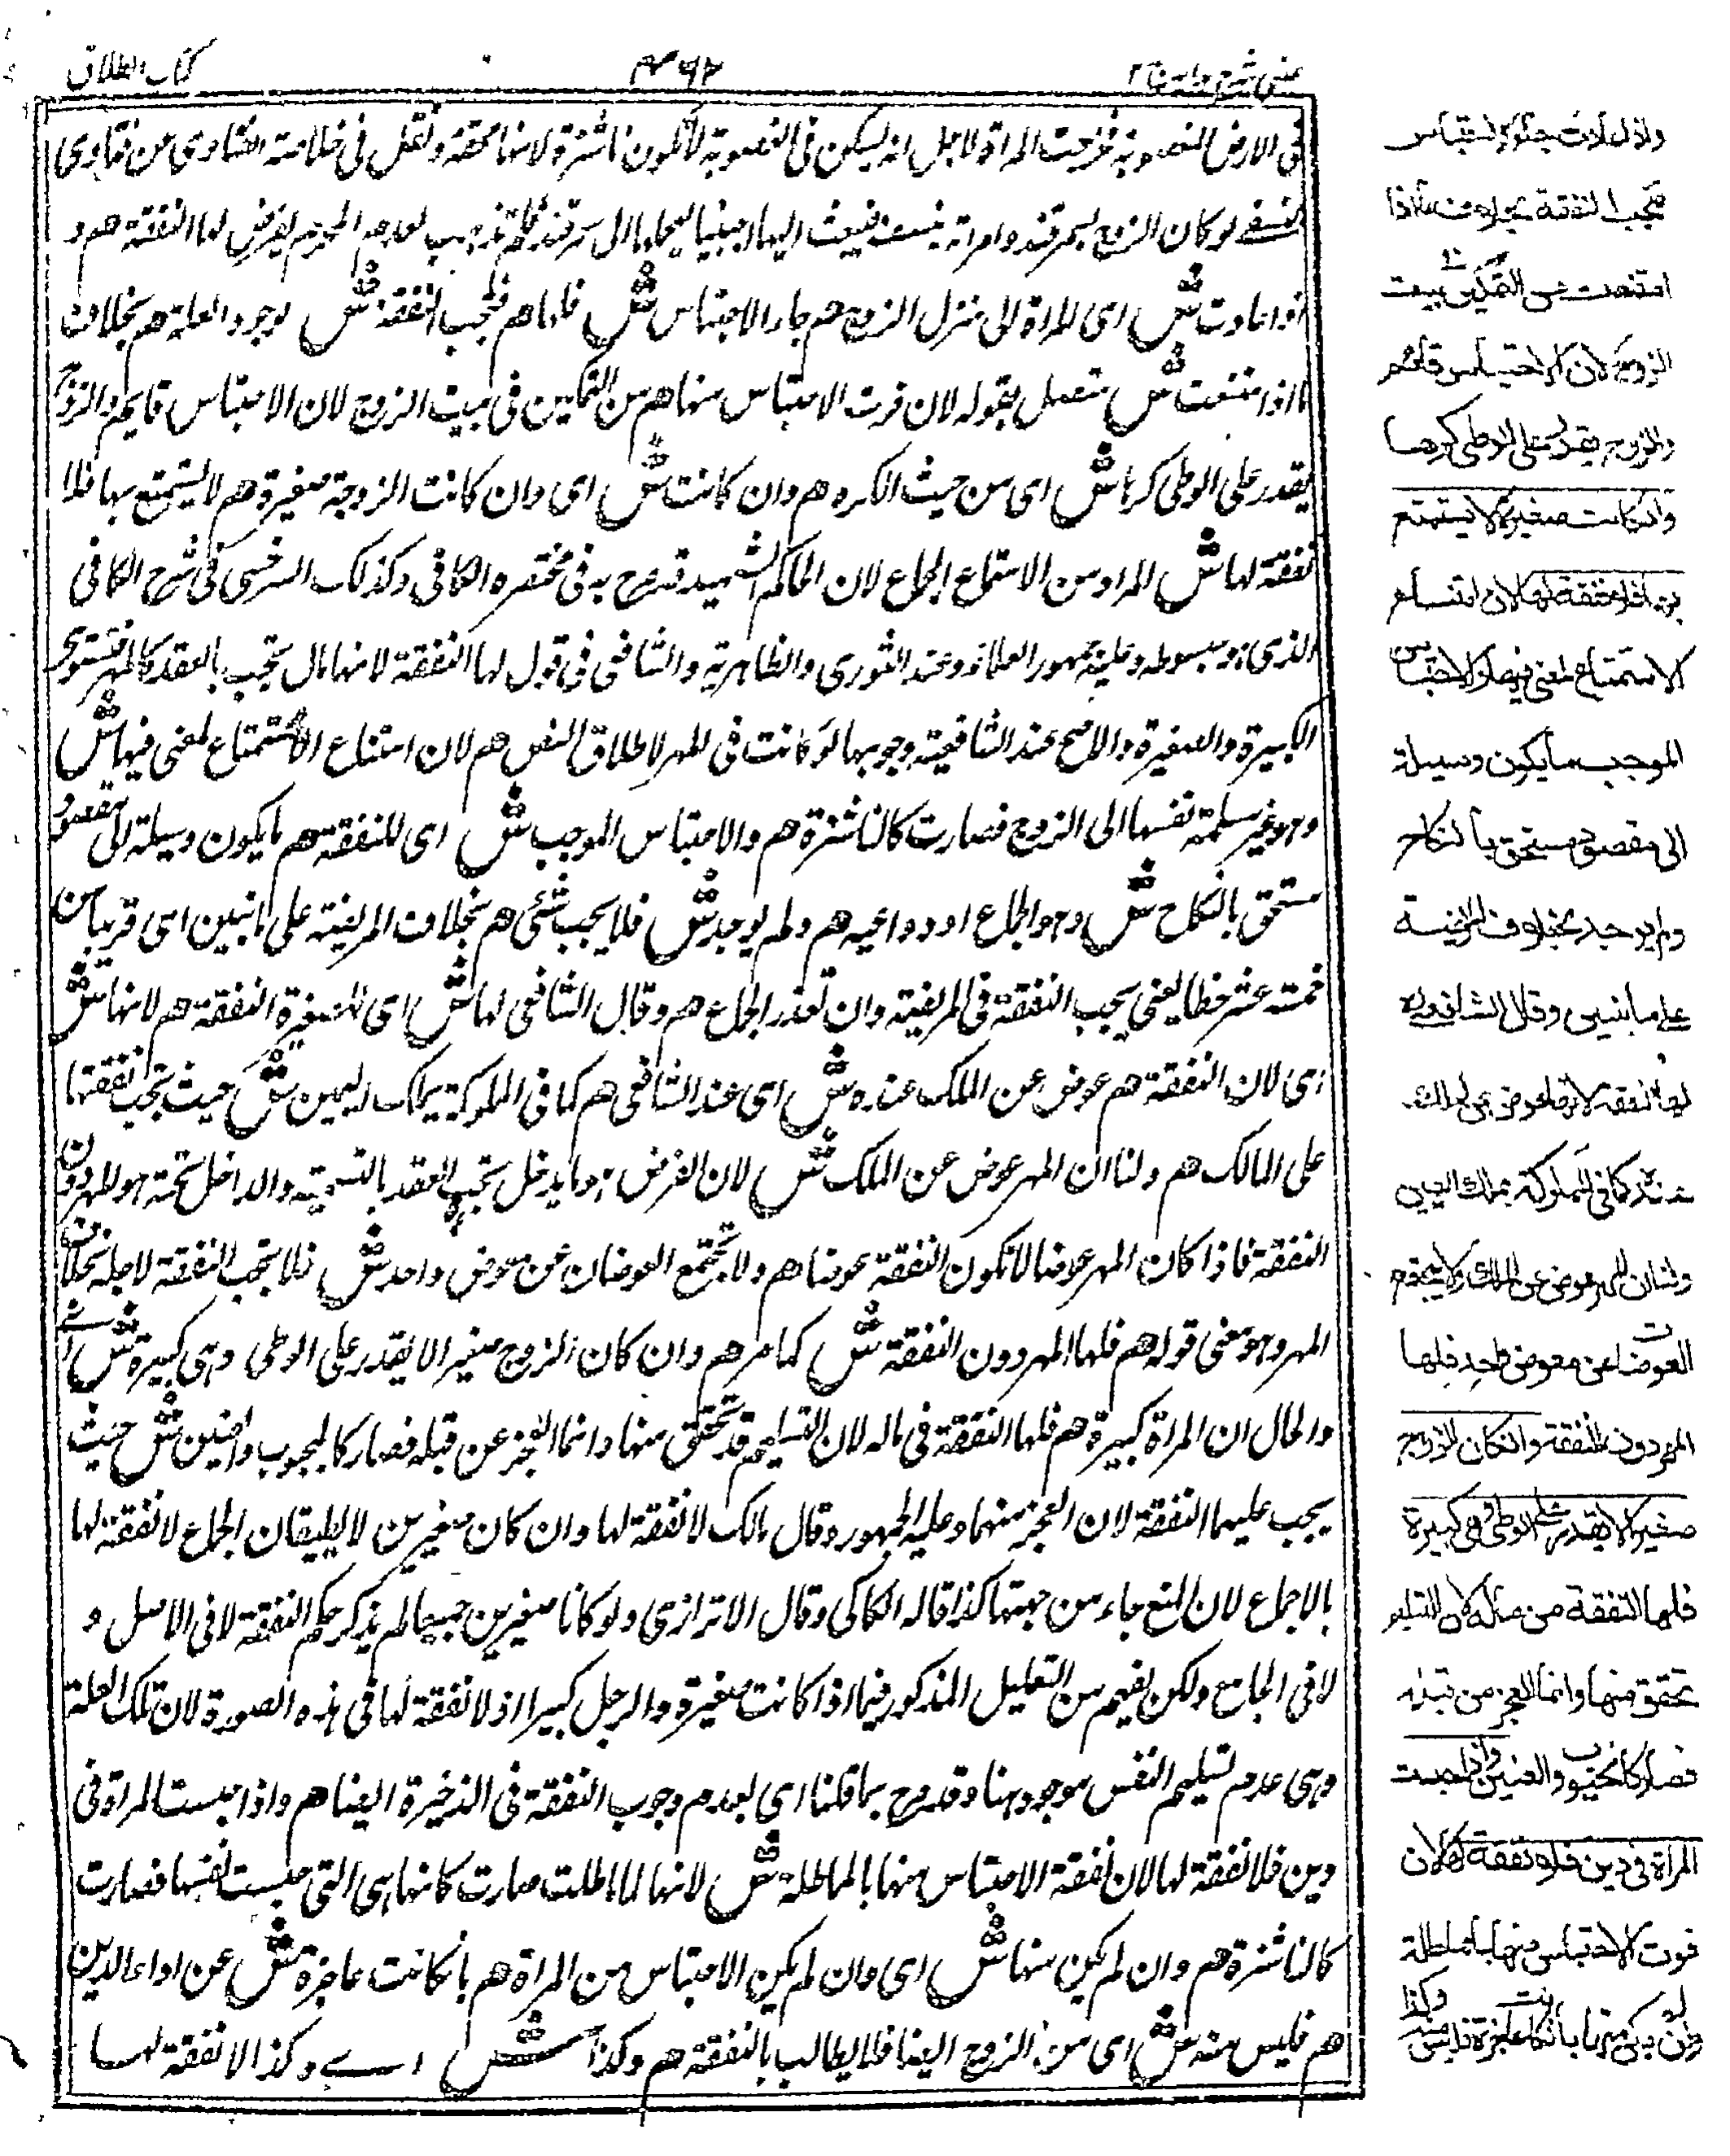 كتاب الطلاق
في الارض المغصوبة فخرجت المراة لاجل انه يسكن في المغصوبة لا تكون ناشزة لانها محقة ونقل في خلاصة الفتاوى من فتاوى
النسفي لو كان الزوج بسمرقند وامراته بنسف فبعث اليها اجنبيا ليحملها الى سمرقند فلم تذهب لعدم المحرم يفرض لها النفقة هم و
اذا عادت ش اى المراة الى منزل الزوج هم جاء الاحتباس ش فلها هم فتجب النفقة ش لوجود العلة هم بخلاف
ما اذا امتنعت ش متصل بقوله لان فوت الاحتباس منها هم من التمكين في بيت الزوج لان الاحتباس قايم والزوج
يقدر على الوطى كرها ش اى من حيث الكره هم وان كانت ش اى وان كانت الزوجة صغيرة هم لا يستمتع بها فلا
نفقة لها ش المراد من الاستمتاع الجماع لان الحاكم الشهيد قد صرح به في مختصره الكافي وكذلك السرخسى في شرح الكافي
الذى هو مبسوطه وعليه جمهور العلماء وعند الثورى والظاهرية والشافعى في قول لها النفقة لانها مال تجب بالعقد كالمهر فتستوى
الكبيرة والصغيرة والاصح عند الشافعية وجوبها لو كانت في المهر لاطلاق النص هم لان امتناع الاستمتاع لمعنى فيها ش
وهو غير مسلمة نفسها الى الزوج فصارت كالناشزة هم والاحتباس الموجب ش اى للنفقة هم ما يكون وسيلة الى مقصود
مستحق بالنكاح ش وهو الجماع او دواعيه هم ولم يوجد ش فلا يجب شئى هم بخلاف المريضة على ما نبين اى قريبا من
خمسة عشر خطا يعنى يجب النفقة في المريضة وان تعذر الجماع هم وقال الشافعى لها ش اى للصغيرة النفقة هم لانها ش
اى لان النفقة هم عوض عن الملك عنده ش اى عند الشافعى هم كما في المملوكة بملك اليمين ش حيث تجب نفقتها
على المالك هم ولنا ان المهر عوض عن الملك ش لان العوض هو ما يدخل تحت العقد بالتسمية والداخل تحته هو المهر دون
النفقة فاذا كان المهر عوضا لا تكون النفقة عوضا هم ولا تجتمع العوضان عن معوض واحد ش فلا تجب النفقة لاجله بخلاف
المهر وهو معنى قوله هم فلها المهر دون النفقة ش كما مر هم وان كان الزوج صغيرا لا يقدر على الوطى وهى كبيرة ش اى
والحال ان المراة كبيرة هم فلها النفقة في ماله لان التسليم قد تحقق منها وانما العجز عن قبله فصار كالمجبوب والعنين ش حيث
يجب عليهما النفقة لان العجز منهما وعليه الجمهور وقال مالك لا نفقة لها وان كان صغيرين لا يطيقان الجماع لا نفقة لها
بالاجماع لان المنع جاء من جهتها كذا قاله الكاكى وقال الاترازى ولو كانا صغيرين جميعا لم يذكر حكم النفقة لا في الاصل و
لا في الجامع ولكن يفهم من التعليل المذكور فيما اذا كانت صغيرة والرجل كبيرا اذ لا نفقة لها في هذه الصورة لان تلك العلة
وهى عدم تسليم النفس موجود ههنا وقد صرح بما قلنا اى بعدم وجوب النفقة في الذخيرة ايضا هم واذا حبست المراة في
دين فلا نفقة لها لان نفقة الاحتباس منها بالمماطلة ش لانها لما ماطلت صارت كانها هى التى حبست نفسها فصارت
كالناشزة هم وان لم يكن منها ش اى وان لم يكن الاحتباس من المراة هم بان كانت عاجزة ش عن اداء الدين
هم فليس منه ش اى من الزوج ايضا فلا يطالب بالنفقة هم وكذا ش اے وكذا لا نفقة لها
واذا عادت جاء الاحتباس
فتجب النفقة بخلاف ما اذا
امتنعت من التمكين في بيت
الزوج لان الاحتباس قائم
والزوج يقدر على الوطى كرها
وان كانت صغيرة لا يستمتع
بها فلا نفقة لها لان امتناع
الاستمتاع لمعنى فيها والاحتباس
الموجب ما يكون وسيلة
الى مقصود مستحق بالنكاح
ولم يوجد بخلاف المريضة
على ما نبين وقال الشافعى رح
لها النفقة لانها عوض عن الملك
عنده كما في المملوكة بملك اليمين
ولنا ان المهر عوض عن الملك ولا يجتمع
العوضان عن معوض واحد فلها
المهر دون النفقة وان كان الزوج
صغيرا لا يقدر على الوطى وهى كبيرة
فلها النفقة من ماله لان التسليم
تحقق منها وانما العجز من قبله
فصار كالمجبوب والعنين واذا حبست
المراة في دين فلا نفقة لها لان
فوت الاحتباس منها بالمماطلة
وان لم يكن منها بان كانت عاجزة فليس منه وكذا